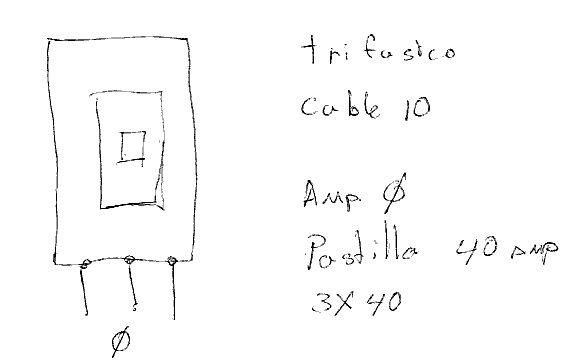 trifasico
Cable 10
Amp Ø
Pastilla 40 amp
3X40
Ø